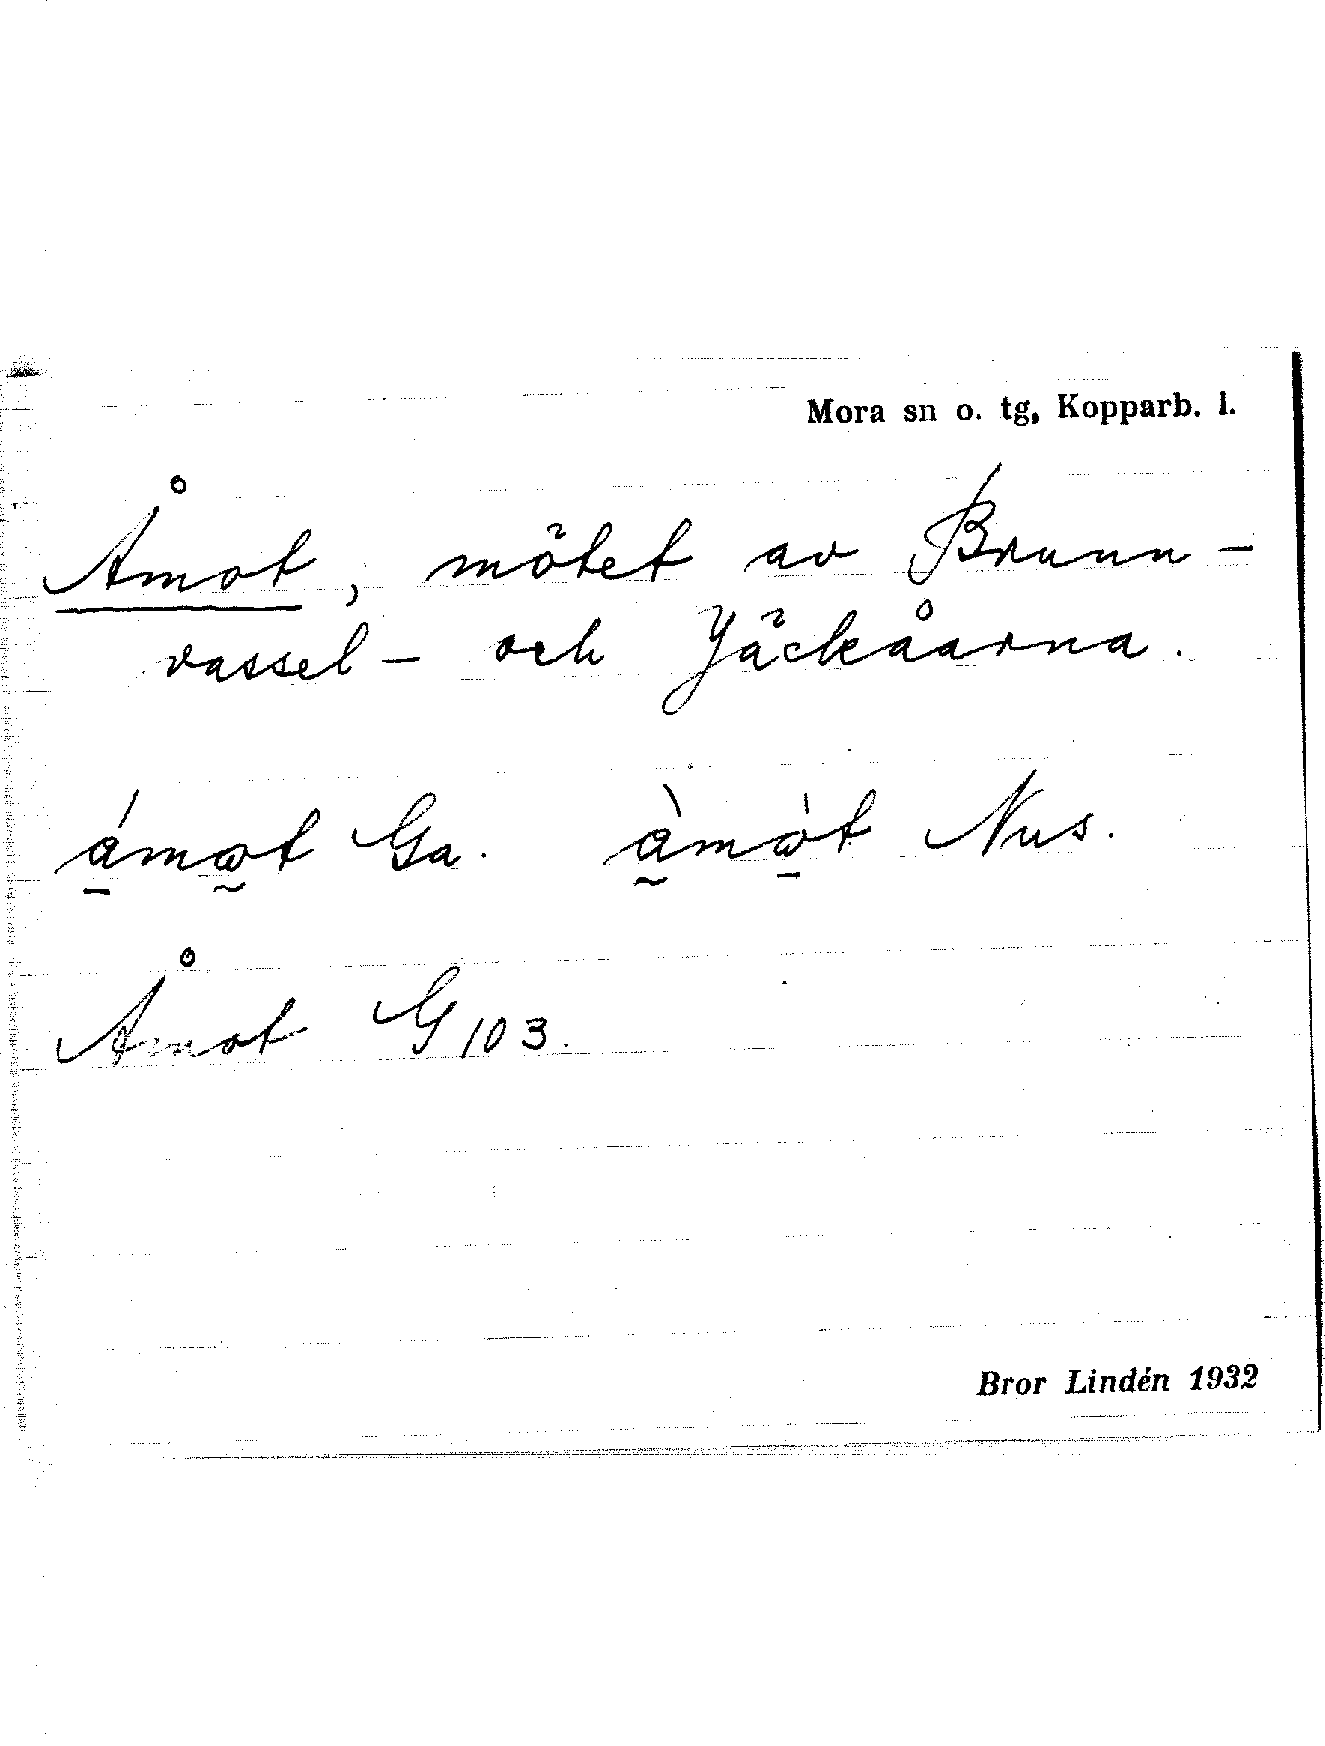 Mora sn o. tg, Kopparb. l.
Åmot, mötet av Brunn-
vassel- och Jäckåarna.
ámot Ga. àmòt Nus.
Åmot G 103.
Bror Lindén 1932